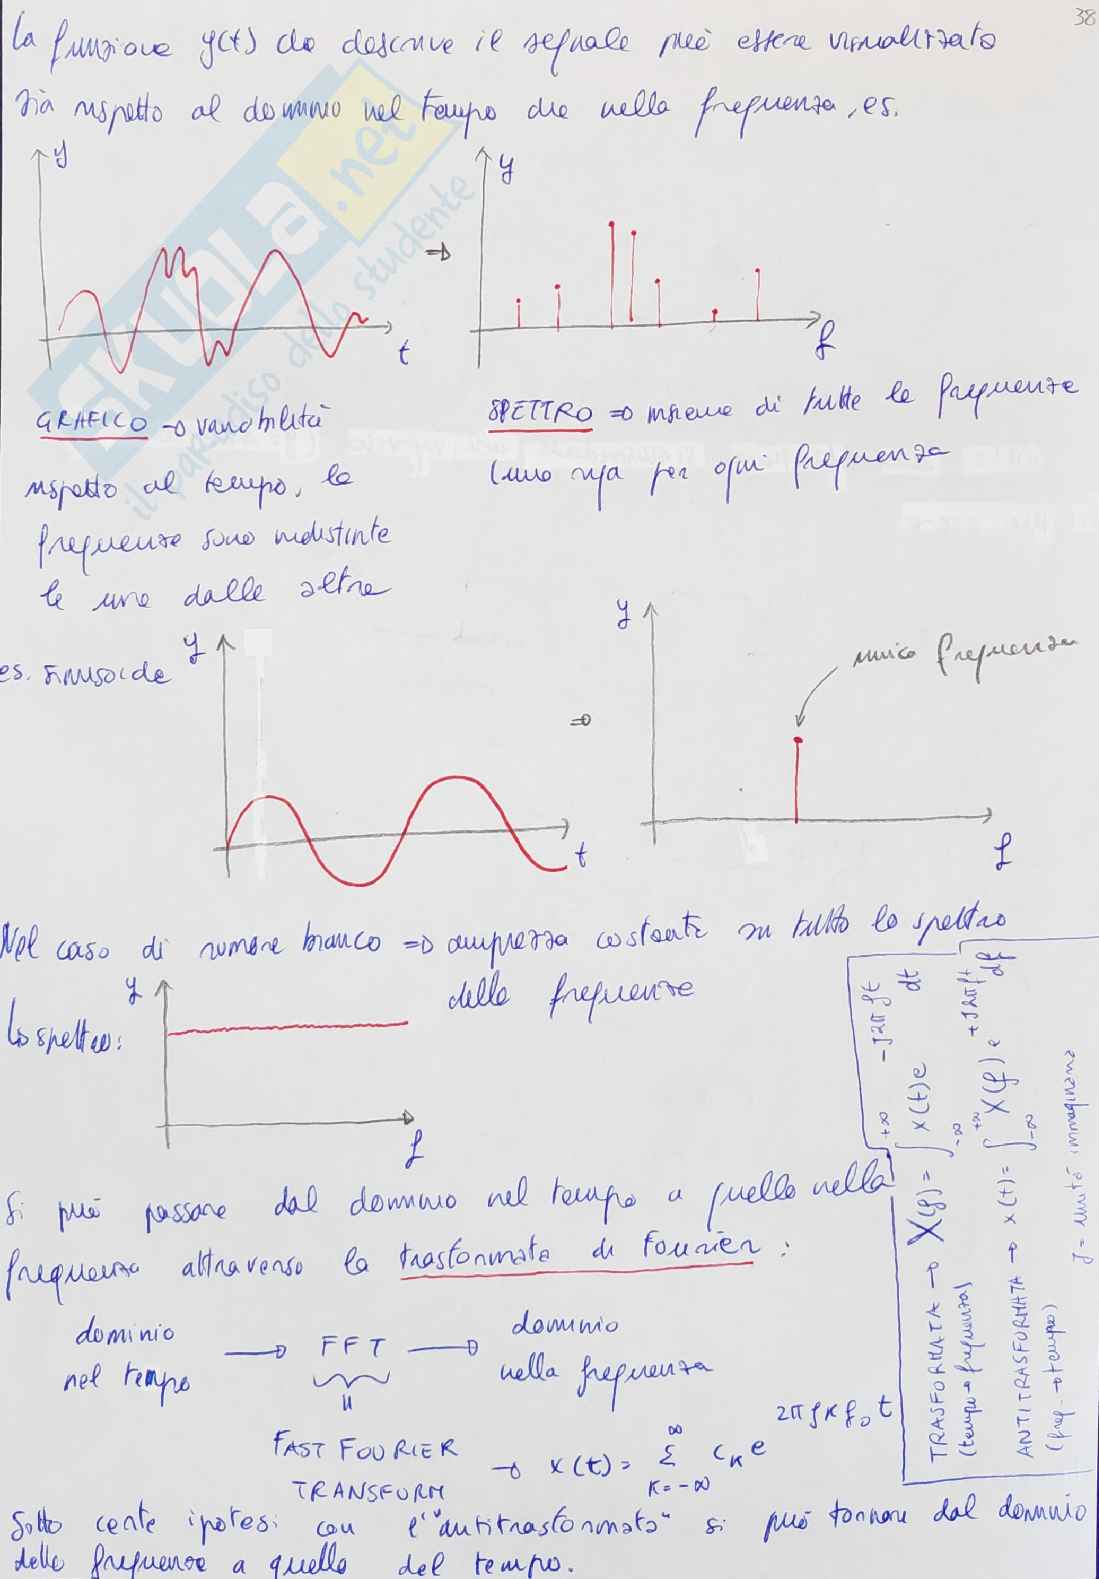 38
La funzione y(t) che descrive il segnale può essere visualizzata
sia rispetto al dominio nel tempo che nella frequenza, es.
y
y
⇒
t
f
GRAFICO → variabilità
rispetto al tempo, le
frequenze sono indistinte
le une dalle altre
SPETTRO ⇒ insieme di tutte le frequenze
(una riga per ogni frequenza
es. sinusoide
y
y
unica frequenza
⇒
t
f
Nel caso di rumore bianco ⇒ ampiezza costante su tutto lo spettro
delle frequenze
y
Lo spettro:
f
Si può passare dal dominio nel tempo a quello nella
frequenza attraverso la trasformata di Fourier:
dominio
nel tempo
→ FFT →
dominio
nella frequenza
FAST FOURIER
TRANSFORM
→ x(t) = Σ_{K=-∞}^{∞} c_K e^{2πjKf₀t}
Sotto certe ipotesi con l'"antitrasformata" si può tornare dal dominio
delle frequenze a quello del tempo.
TRASFORMATA → X(f) = ∫_{-∞}^{+∞} x(t) e^{-J2πft} dt
(tempo→frequenza)
ANTITRASFORMATA → x(t) = ∫_{-∞}^{+∞} X(f) e^{+J2πft} df
(freq.→tempo)
J = unità immaginaria
SKUOLA.net
il paradiso dello studente